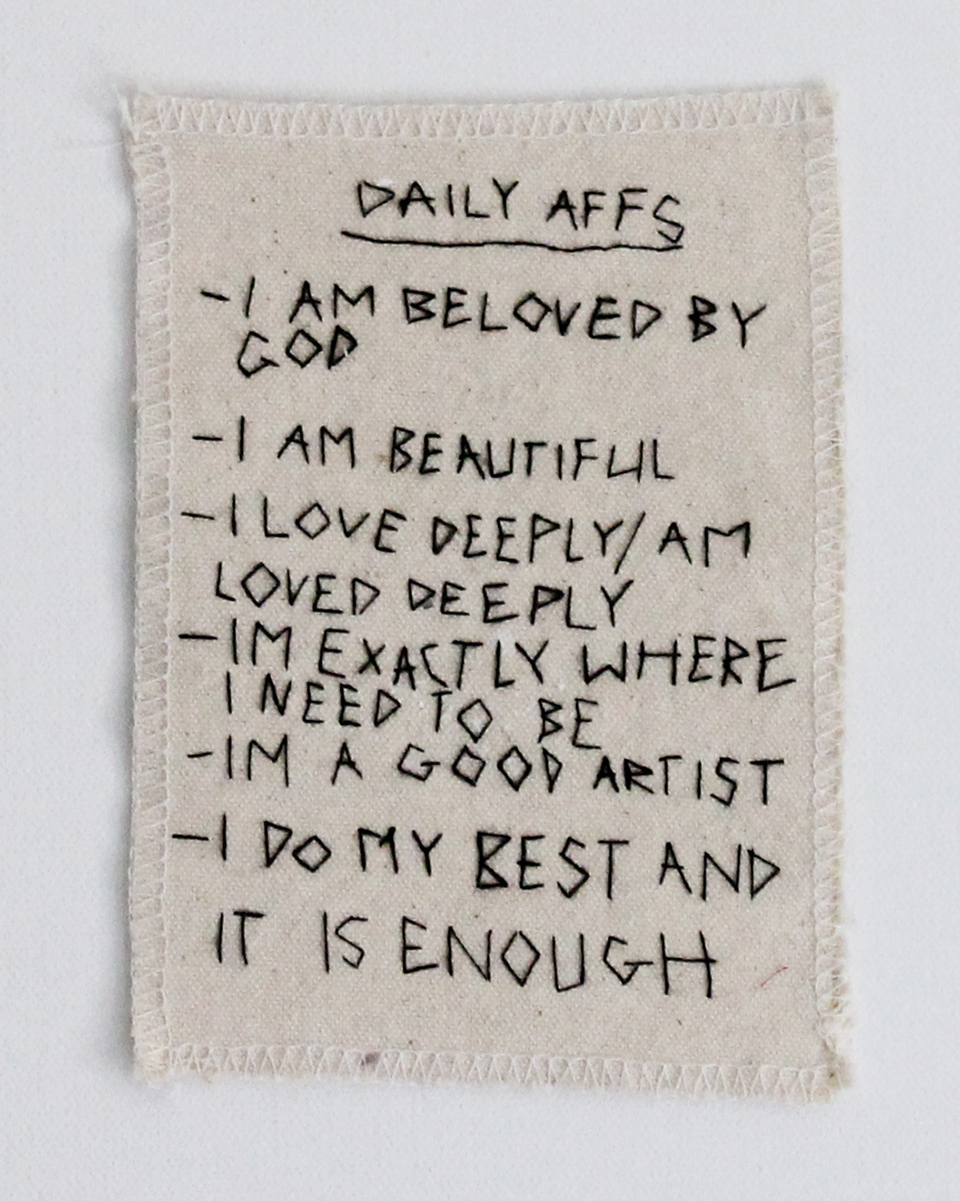 DAILY AFFS
-I AM BELOVED BY
GOD
-I AM BEAUTIFUL
-I LOVE DEEPLY/AM
LOVED DEEPLY
-IM EXACTLY WHERE
I NEED TO BE
-IM A GOOD ARTIST
-I DO MY BEST AND
IT IS ENOUGH